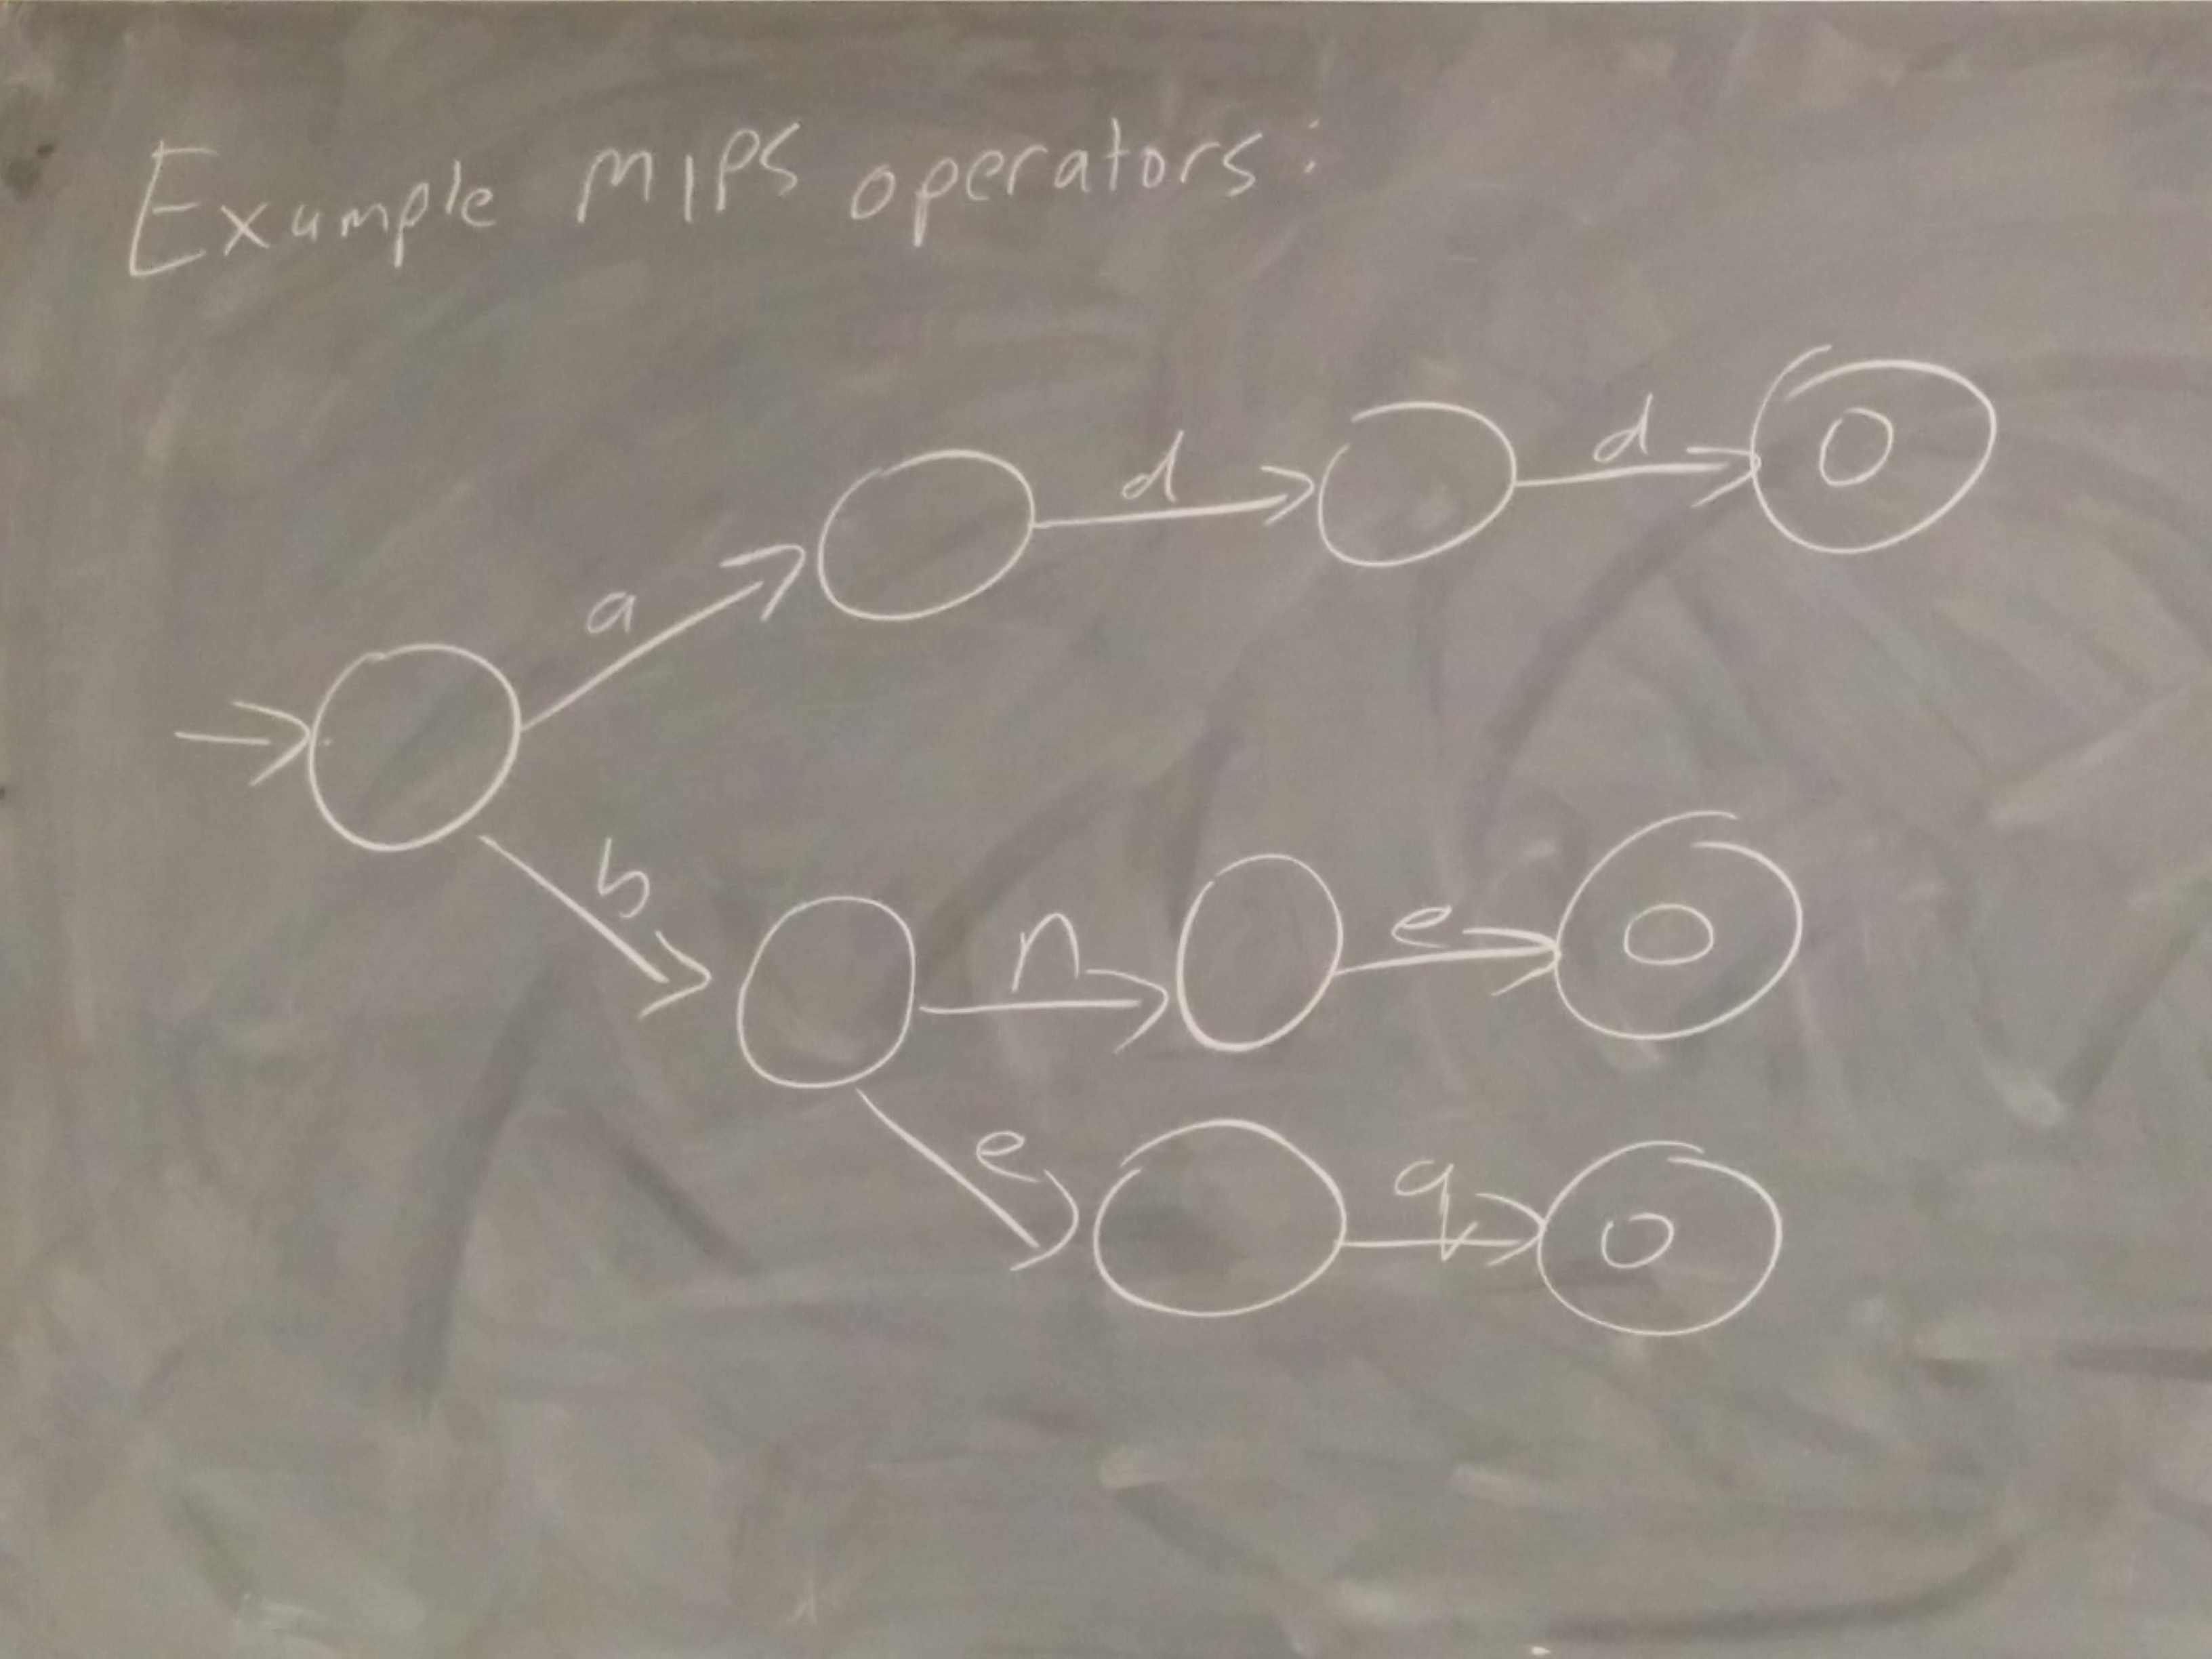 Example MIPS operators:
a
d
d
b
n
e
e
q